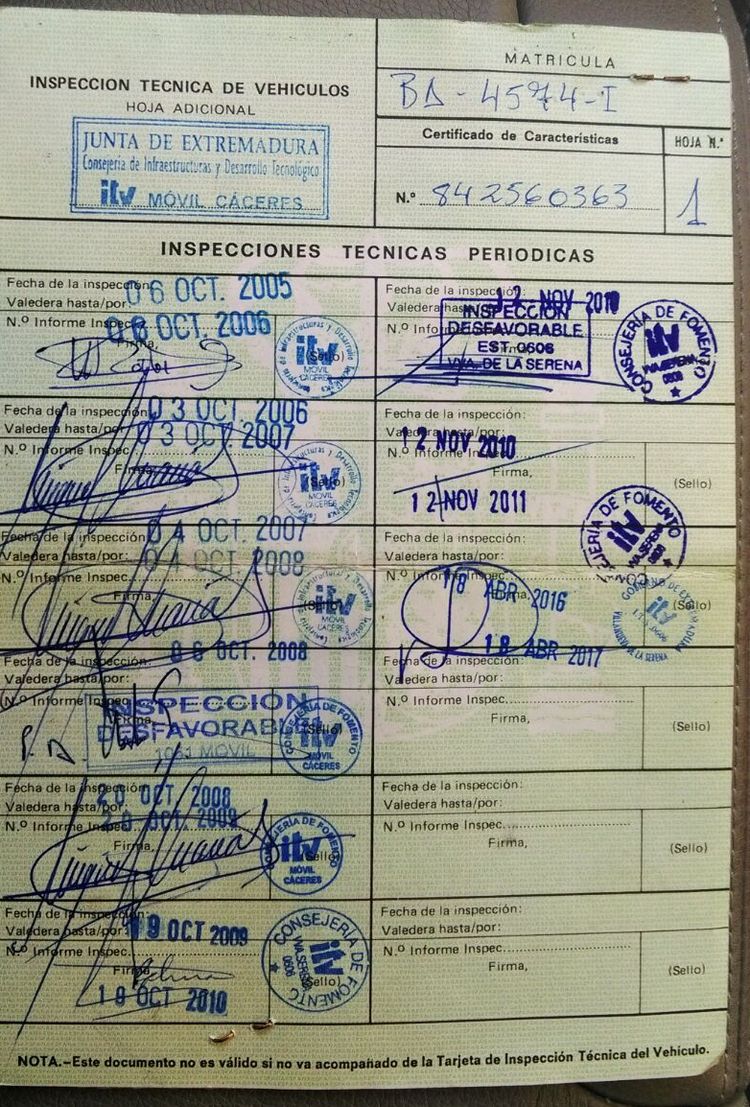 INSPECCION TECNICA DE VEHICULOS
HOJA ADICIONAL
JUNTA DE EXTREMADURA
Consejería de Infraestructuras y Desarrollo Tecnológico
itv MÓVIL CÁCERES
MATRICULA
BA-4574-I
Certificado de Características
N.º 842560363
HOJA N.º
1
INSPECCIONES TECNICAS PERIODICAS
Fecha de la inspección: 06 OCT. 2005
Valedera hasta/por: 06 OCT. 2006
N.º Informe Inspec.
Firma,
(Sello)
itv
MÓVIL
CÁCERES
Fecha de la inspección: 03 OCT. 2006
Valedera hasta/por: 03 OCT. 2007
N.º Informe Inspec.
Firma,
(Sello)
itv
MÓVIL
CÁCERES
Fecha de la inspección: 04 OCT. 2007
Valedera hasta/por: 04 OCT. 2008
N.º Informe Inspec.
Firma,
(Sello)
itv
MÓVIL
CÁCERES
Fecha de la inspección: 06 OCT. 2008
Valedera hasta/por:
N.º Informe Inspec.
Firma,
P.A
INSPECCIÓN
DESFAVORABLE
1061 MÓVIL
(Sello)
CONSEJERÍA DE FOMENTO
itv
MÓVIL
CÁCERES
Fecha de la inspección: 20 OCT 2008
Valedera hasta/por: 20 OCT 2009
N.º Informe Inspec.
Firma,
(Sello)
CONSEJERÍA DE FOMENTO
itv
MÓVIL
CÁCERES
Fecha de la inspección:
Valedera hasta/por: 19 OCT 2009
N.º Informe Inspec.
Firma,
19 OCT 2010
(Sello)
CONSEJERÍA DE FOMENTO
itv
VVA. SERENA
0606
Fecha de la inspección: NOV 2010
Valedera hasta/por:
N.º Informe Inspec.
Firma,
INSPECCIÓN
DESFAVORABLE
EST. 0606
VVA. DE LA SERENA
CONSEJERÍA DE FOMENTO
itv
VVA SERENA
0606
Fecha de la inspección:
Valedera hasta/por:
12 NOV 2010
N.º Informe Inspec.
Firma,
(Sello)
12 NOV 2011
CONSEJERÍA DE FOMENTO
itv
VVA SERENA
0606
Fecha de la inspección:
Valedera hasta/por:
N.º Informe Inspec.
18 ABR 2016
(Sello)
GOBIERNO DE EXTREMADURA
itv
VILLANUEVA DE LA SERENA
18 ABR 2017
Fecha de la inspección:
Valedera hasta/por:
N.º Informe Inspec.
Firma,
(Sello)
Fecha de la inspección:
Valedera hasta/por:
N.º Informe Inspec.
Firma,
(Sello)
Fecha de la inspección:
Valedera hasta/por:
N.º Informe Inspec.
Firma,
(Sello)
NOTA.-Este documento no es válido si no va acompañado de la Tarjeta de Inspección Técnica del Vehículo.